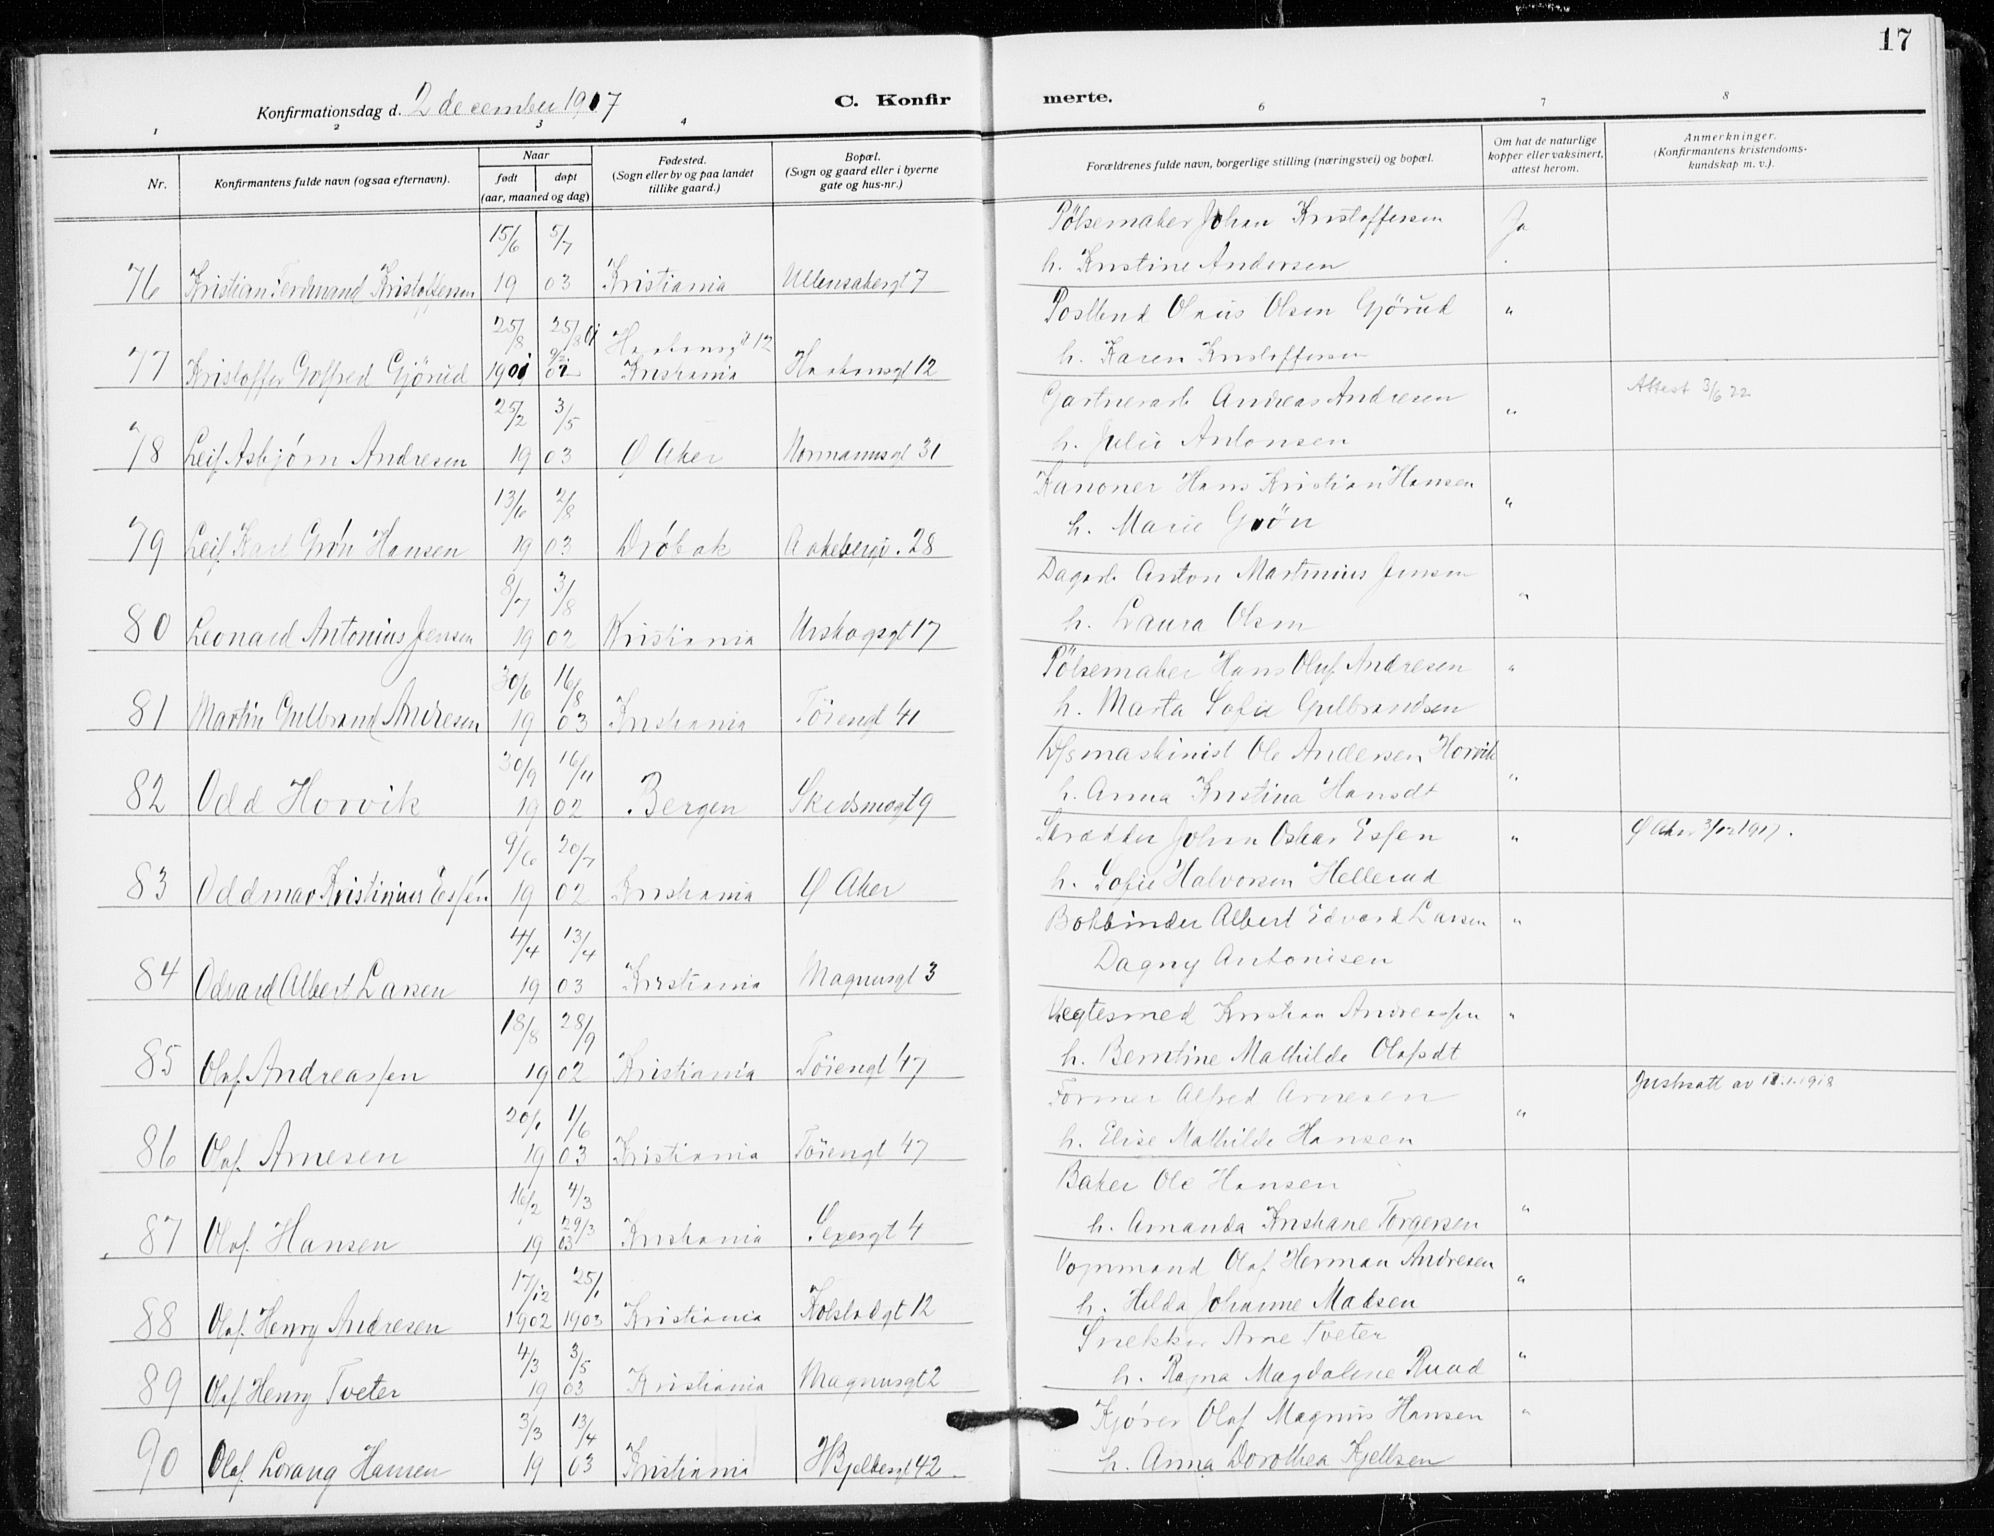 17
Konfirmationsdag d. 2 december 1917
C. Konfir merte.
1 2 3 4 6 7 8
Nr. Konfirmantens fulde navn (ogsaa efternavn). Naar født døpt (aar, maaned og dag) Fødested. (Sogn eller by og paa landet tillike gaard.) Bopæl. (Sogn og gaard eller i byerne gate og hus-nr.) Forældrenes fulde navn, borgerlige stilling (næringsvei) og bopæl. Om hat de naturlige kopper eller vaksinert, attest herom. Anmerkninger. (Konfirmantens kristendomskundskap m. v.).
15/6 5/7 Pølsemaker Johan Kristoffersen Ja
76 Kristian Ferdinand Kristoffersen 19 03 Kristiania Ullensakergt 7 h. Kristine Andersen
25/8 25/8 01 12 Postbud Olaus Olsen Gjörud "
77 Kristoffer Gotfred Gjörud 1901 01 Kristiania 12 h. Karen Kristoffersen
25/2 3/5 Gartnerarb Andreas Andresen " Attest 3/6 22
78 Leif Asbjørn Andresen 19 03 Ø Aker Normannsgt 31 h. Julie Antonsen
13/6 2/8 Kanoner Hans Kristian Hansen "
79 Leif Karl Grön Hansen 19 03 Dröbak Aakebergv. 28 h. Marie Grön
8/7 3/8 Dagarb Anton Martinius Jensen "
80 Leonard Antonius Jensen 19 02 Kristiania Urskogsgt 17 h. Laura Olsen
30/6 16/8 Pølsemaker Hans Oluf Andresen "
81 Martin Gulbrand Andresen 19 03 Kristiania Töiengt 41 h. Marta Sofie Gulbrandsen
30/9 16/11 maskinist Ole Andersen Horvik "
82 Odd Horvik 19 02 Bergen Skedsmogt 9 h. Anna Kristina Hansdt
9/6 20/7 Skrædder Johan Oskar Esfen " Ø Aker 3/12 1917.
83 Oddmar Kristinius Esfen 19 02 Kristiania Ø Aker h. Sofie Halvorsen Hellerud
4/4 13/4 Bokbinder Albert Edvard Larsen "
84 Odvard Albert Larsen 19 03 Kristiania Magnusgt 3 Dagny Antonisen
18/8 28/9 Vegtesmed Kristian Andreassen "
85 Olaf Andreassen 19 02 Kristiania Töiengt 47 h. Berntine Mathilde Olafsdt
20/1 1/6 Former Alfred Arnesen " av 11.1.1918
86 Olaf Arnesen 19 03 Kristiania Töiengt 47 h. Elise Mathilde Hansen
16/2 4/3 Baker Ole Hansen
87 Olaf Hansen 19 29/3 03 Kristiania Sexesgt 4 h. Amanda Kristiane Torgersen "
17/12 25/1 Vognmand Olaf Herman Andresen "
88 Olaf Henry Andresen 1902 1903 Kristiania Kolstadgt 12 h. Hilda Johanne Madsen
4/3 3/5 Snekker Arne Tveter
89 Olaf Henry Tveter 19 03 Kristiania Magnusgt 2 h. Ragna Magdalene Ruud "
3/3 13/4 Kjører Olaf Magnus Hansen "
90 Olaf Lorang Hansen 19 03 Kristiania Hjelbergt 42 h. Anna Dorothea Kjellsen